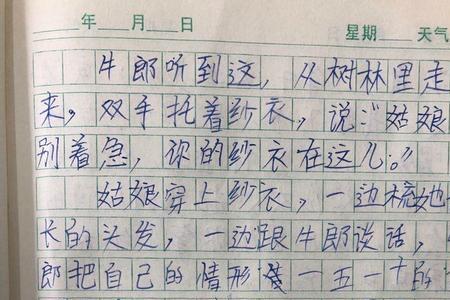 年 月 日 星期 天气
牛郎听到这，从树林里走
来，双手托着纱衣，说：“姑娘
别着急，你的纱衣在这儿。”
姑娘穿上纱衣，一边梳她
长的头发，一边跟牛郎谈话，
郎把自己的情形 一五一十的